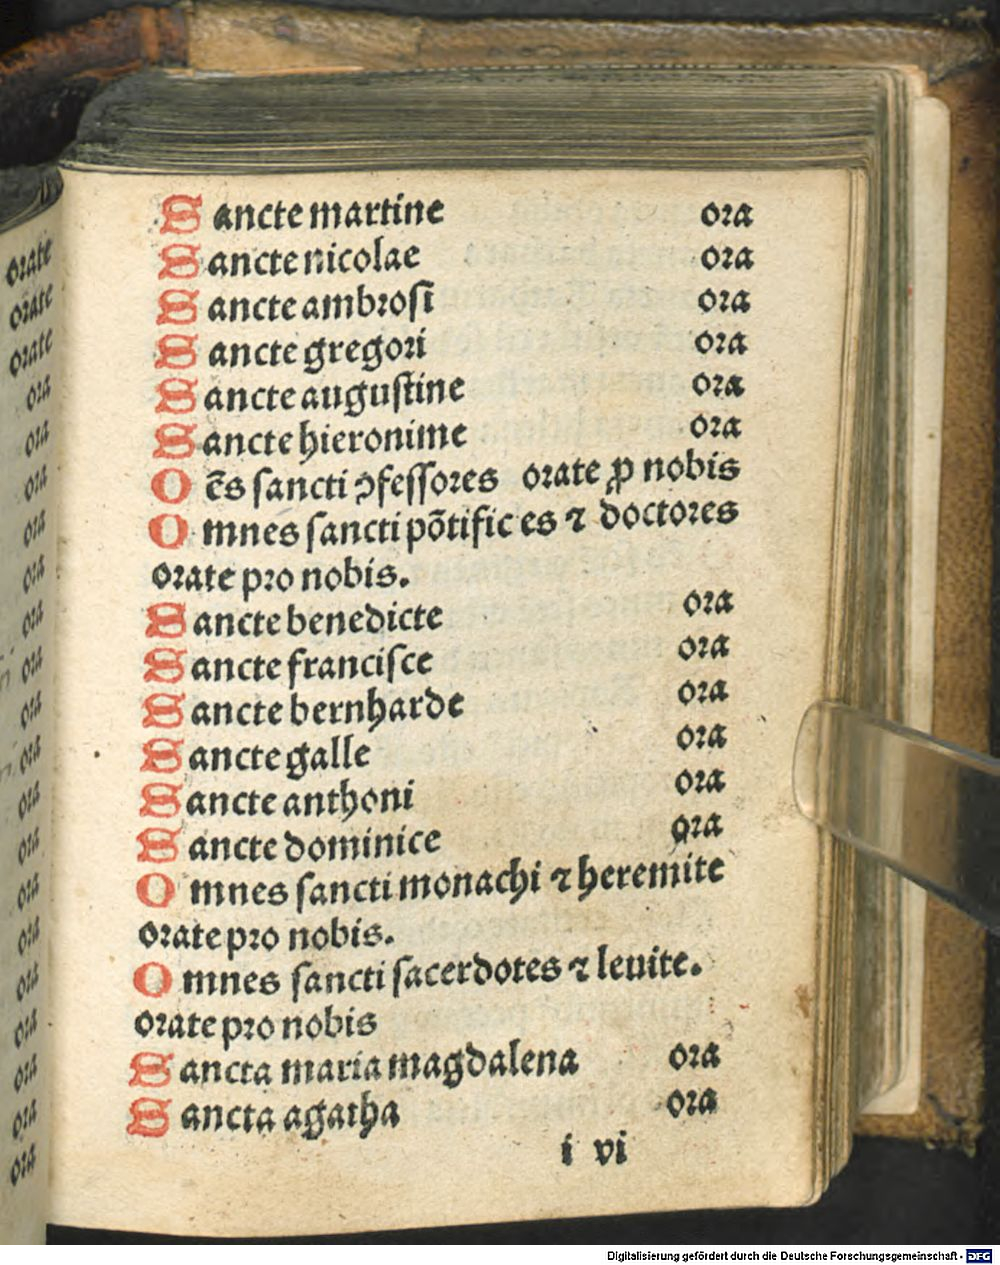 orate
orate
orate
ora
ora
ora
ora
ora
ora
ora
ora
ora
ora
ora
ora
ora
ora
ora
ora
ora
ora
Sancte martine ora
Sancte nicolae ora
Sancte ambroſi ora
Sancte gregori ora
Sancte auguſtine ora
Sancte hieronime ora
Oēs ſancti ꝯfeſſores orate ꝓ nobis
Omnes ſancti pōtific es ⁊ doctores
orate pro nobis.
Sancte benedicte ora
Sancte franciſce ora
Sancte bernharde ora
Sancte galle ora
Sancte anthoni ora
Sancte dominice ora
Omnes ſancti monachi ⁊ heremite
orate pro nobis.
Omnes ſancti ſacerdotes ⁊ leuite.
orate pro nobis
Sancta maria magdalena ora
Sancta agatha ora
i vi
Digitalisierung gefördert durch die Deutsche Forschungsgemeinschaft - DFG